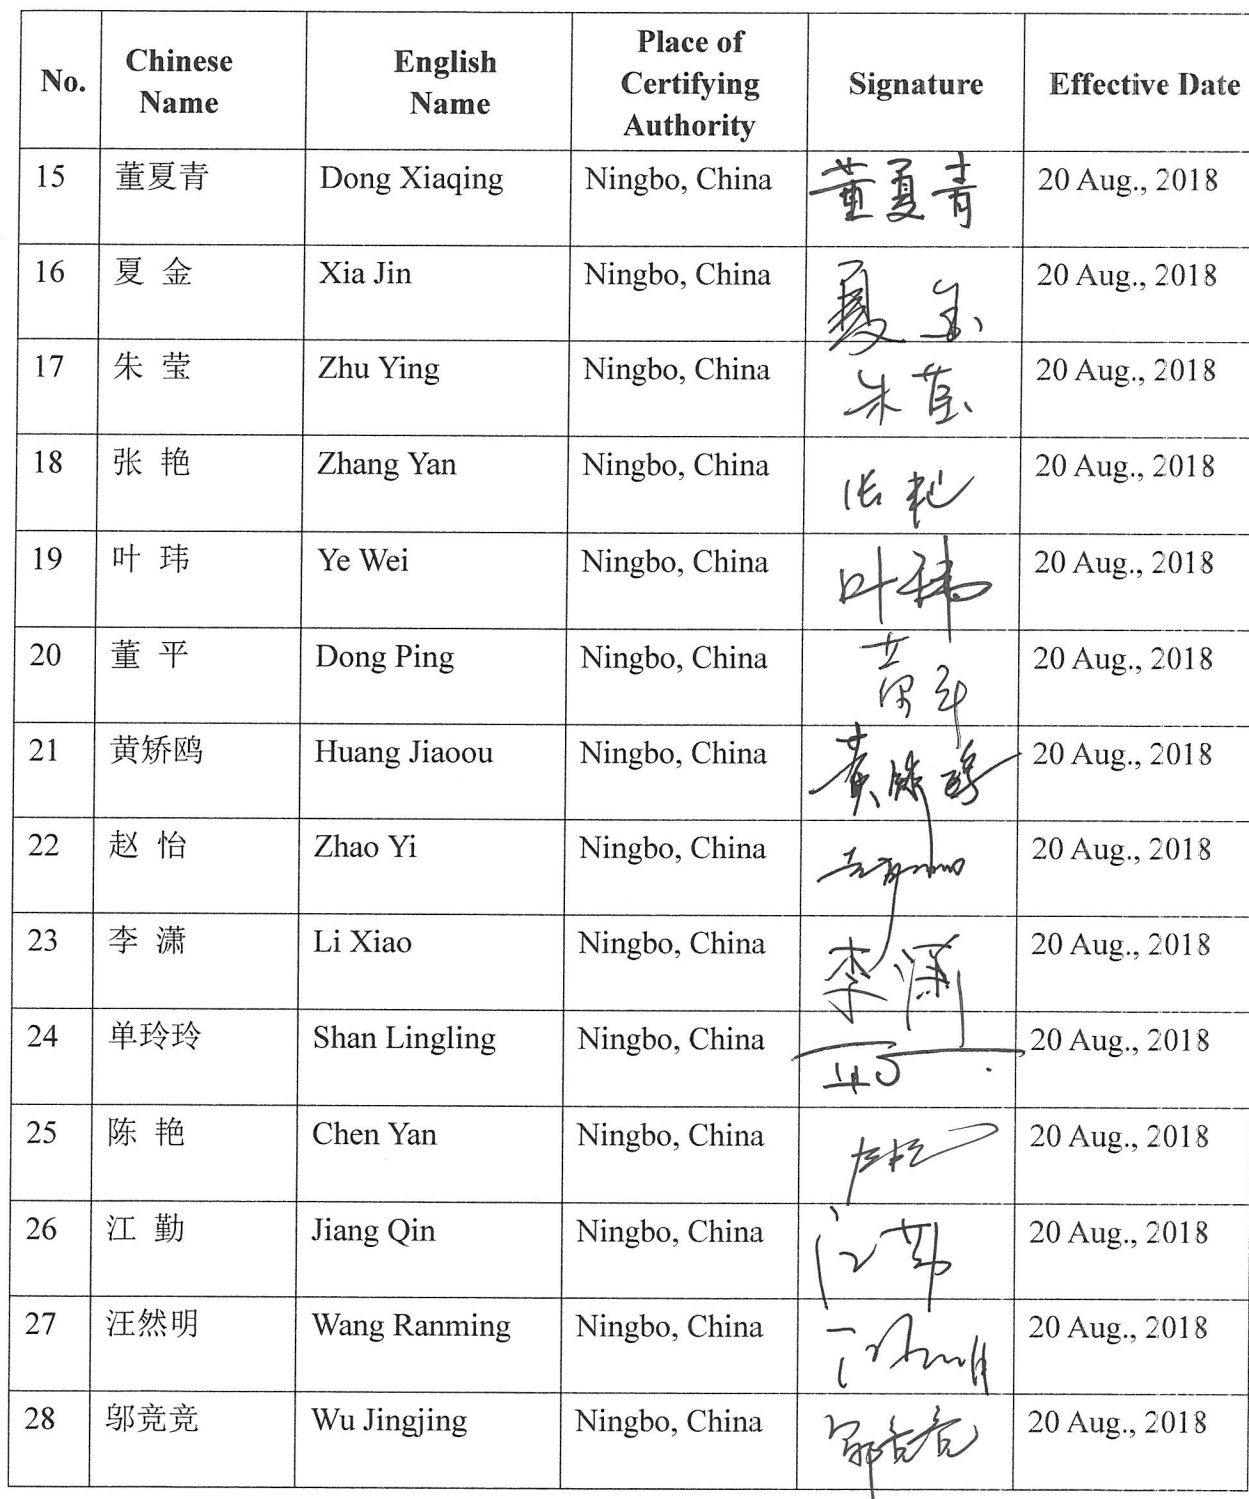 No. Chinese Name English Name Place of Certifying Authority Signature Effective Date
15 董夏青 Dong Xiaqing Ningbo, China 董夏青 20 Aug., 2018
16 夏 金 Xia Jin Ningbo, China 夏金 20 Aug., 2018
17 朱 莹 Zhu Ying Ningbo, China 朱莹 20 Aug., 2018
18 张 艳 Zhang Yan Ningbo, China 张艳 20 Aug., 2018
19 叶 玮 Ye Wei Ningbo, China 叶玮 20 Aug., 2018
20 董 平 Dong Ping Ningbo, China 20 Aug., 2018
21 黄矫鸥 Huang Jiaoou Ningbo, China 黄矫鸥 20 Aug., 2018
22 赵 怡 Zhao Yi Ningbo, China 20 Aug., 2018
23 李 潇 Li Xiao Ningbo, China 李潇 20 Aug., 2018
24 单玲玲 Shan Lingling Ningbo, China 20 Aug., 2018
25 陈 艳 Chen Yan Ningbo, China 20 Aug., 2018
26 江 勤 Jiang Qin Ningbo, China 江勤 20 Aug., 2018
27 汪然明 Wang Ranming Ningbo, China 20 Aug., 2018
28 邬竞竞 Wu Jingjing Ningbo, China 邬竞竞 20 Aug., 2018